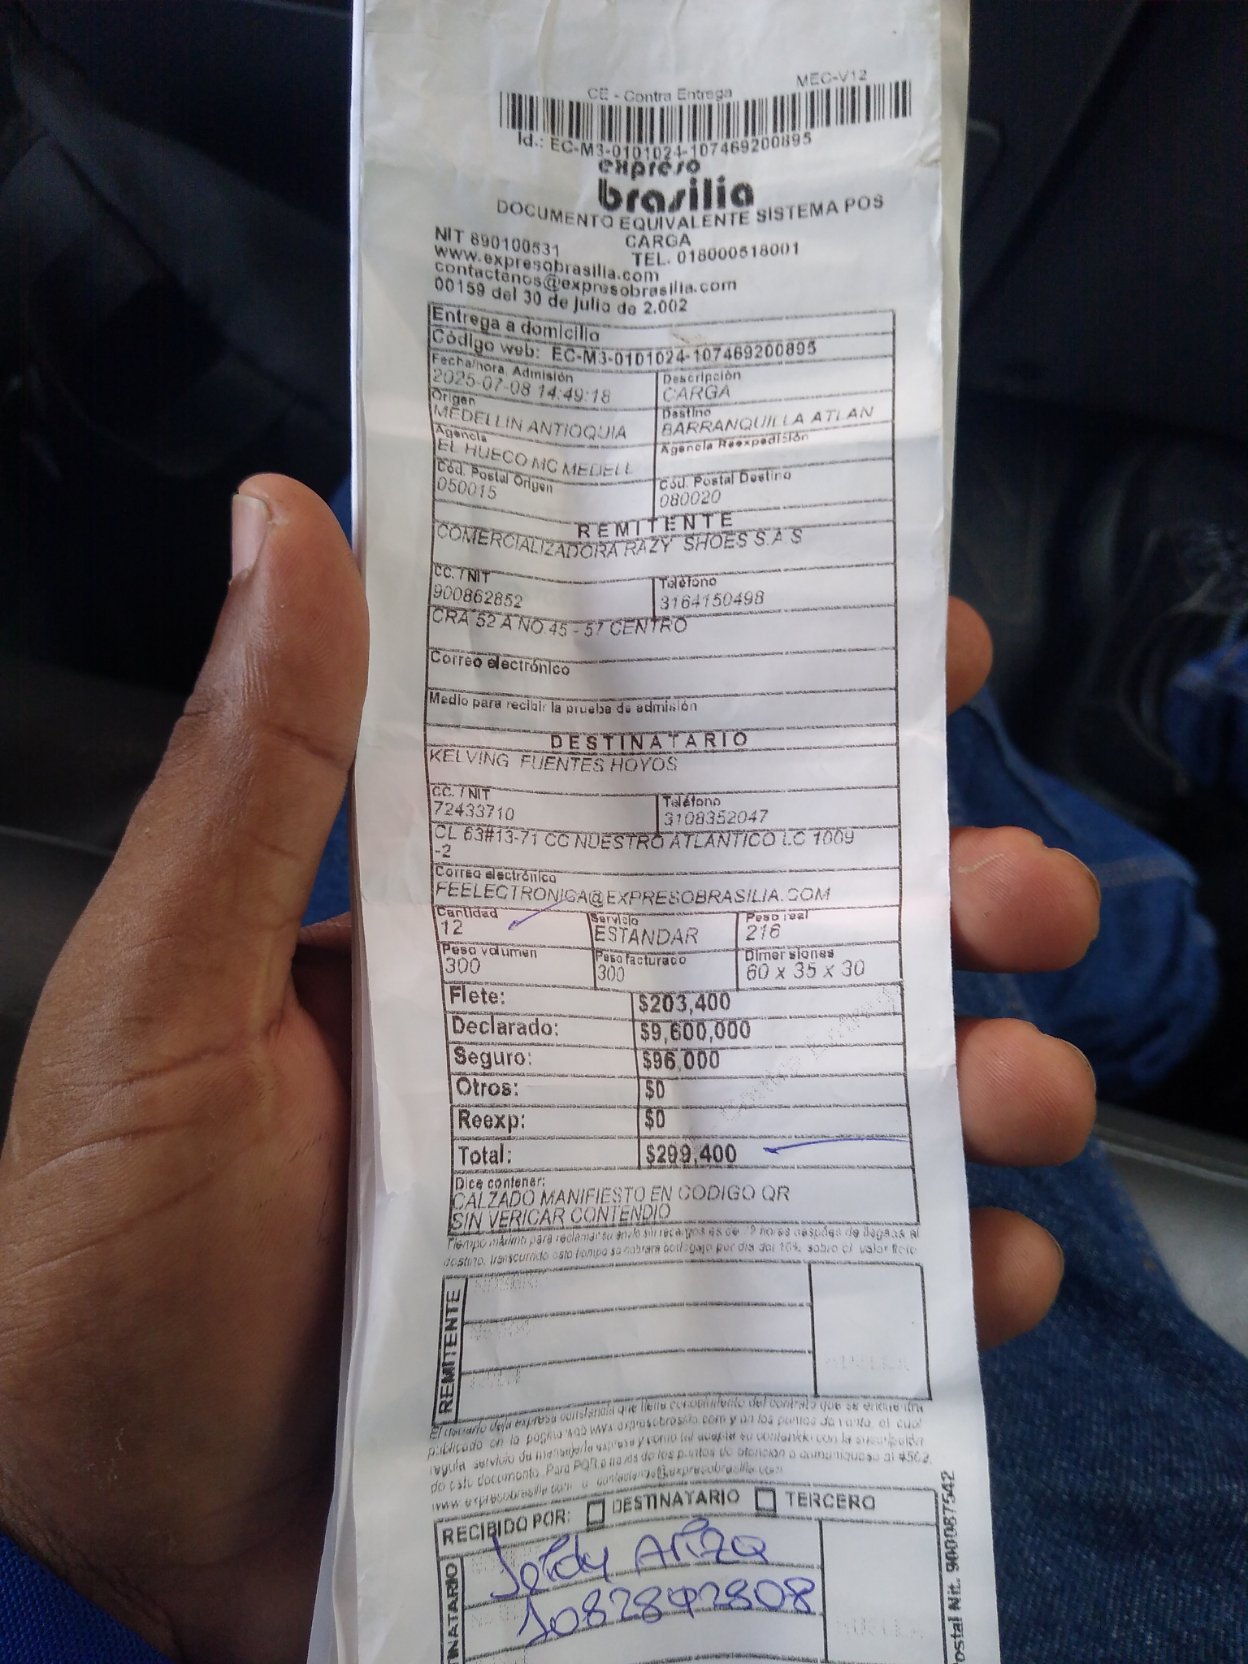 CE - Contra Entrega MEC-V12
Id.: EC-M3-0101024-107469200895
expreso
brasilia
DOCUMENTO EQUIVALENTE SISTEMA POS
CARGA
NIT 890100531 TEL. 018000518001
www.expresobrasilia.com
contactenos@expresobrasilia.com
00159 del 30 de julio de 2.002
Entrega a domicilio
Código web: EC-M3-0101024-107469200895
Fecha/hora. Admisión Descripción
2025-07-08 14:49:18 CARGA
Origen Destino
MEDELLIN ANTIOQUIA BARRANQUILLA ATLAN
Agencia Agencia Reexpedición
EL HUECO MC MEDELL
Cód. Postal Origen Cód. Postal Destino
050015 080020
REMITENTE
COMERCIALIZADORA RAZY SHOES S.A.S
CC. / NIT Teléfono
900862852 3164150498
CRA 52 A NO 45 - 57 CENTRO
Correo electrónico
Medio para recibir la prueba de admisión
DESTINATARIO
KELVING FUENTES HOYOS
CC. / NIT Teléfono
72433710 3108352047
CL 63#13-71 CC NUESTRO ATLANTICO LC 1009
-2
Correo electrónico
FEELECTRONICA@EXPRESOBRASILIA.COM
Cantidad Servicio Peso real
12 ESTANDAR 216
Peso volumen Peso facturado Dimensiones
300 300 60 x 35 x 30
Flete: $203,400
Declarado: $9,600,000
Seguro: $96,000
Otros: $0
Reexp: $0
Total: $299,400
Dice contener:
CALZADO MANIFIESTO EN CODIGO QR
SIN VERICAR CONTENDIO
Tiempo máximo para reclamar su envío sin recargos es de horas después de llegada al
destino, transcurrido este tiempo se cobrará bodegaje por día del 10% sobre el valor flete
REMITENTE
El usuario deja expresa constancia que tiene conocimiento del contrato que se encuentra
publicado en la pagina web www.expresobrasilia.com y en los puntos de venta, el cual
regula servicio de mensajería expresa y como tal acepta su contenido con la suscripción
de este documento. Para PQR a través de los puntos de atención o comuniquese al #502.
www.expresobrasilia.com o contactenos@expresobrasilia.com
RECIBIDO POR: DESTINATARIO TERCERO
Jeidy Ariza
1082842808
INATARIO
HUELLA
ostal Nit. 900087542